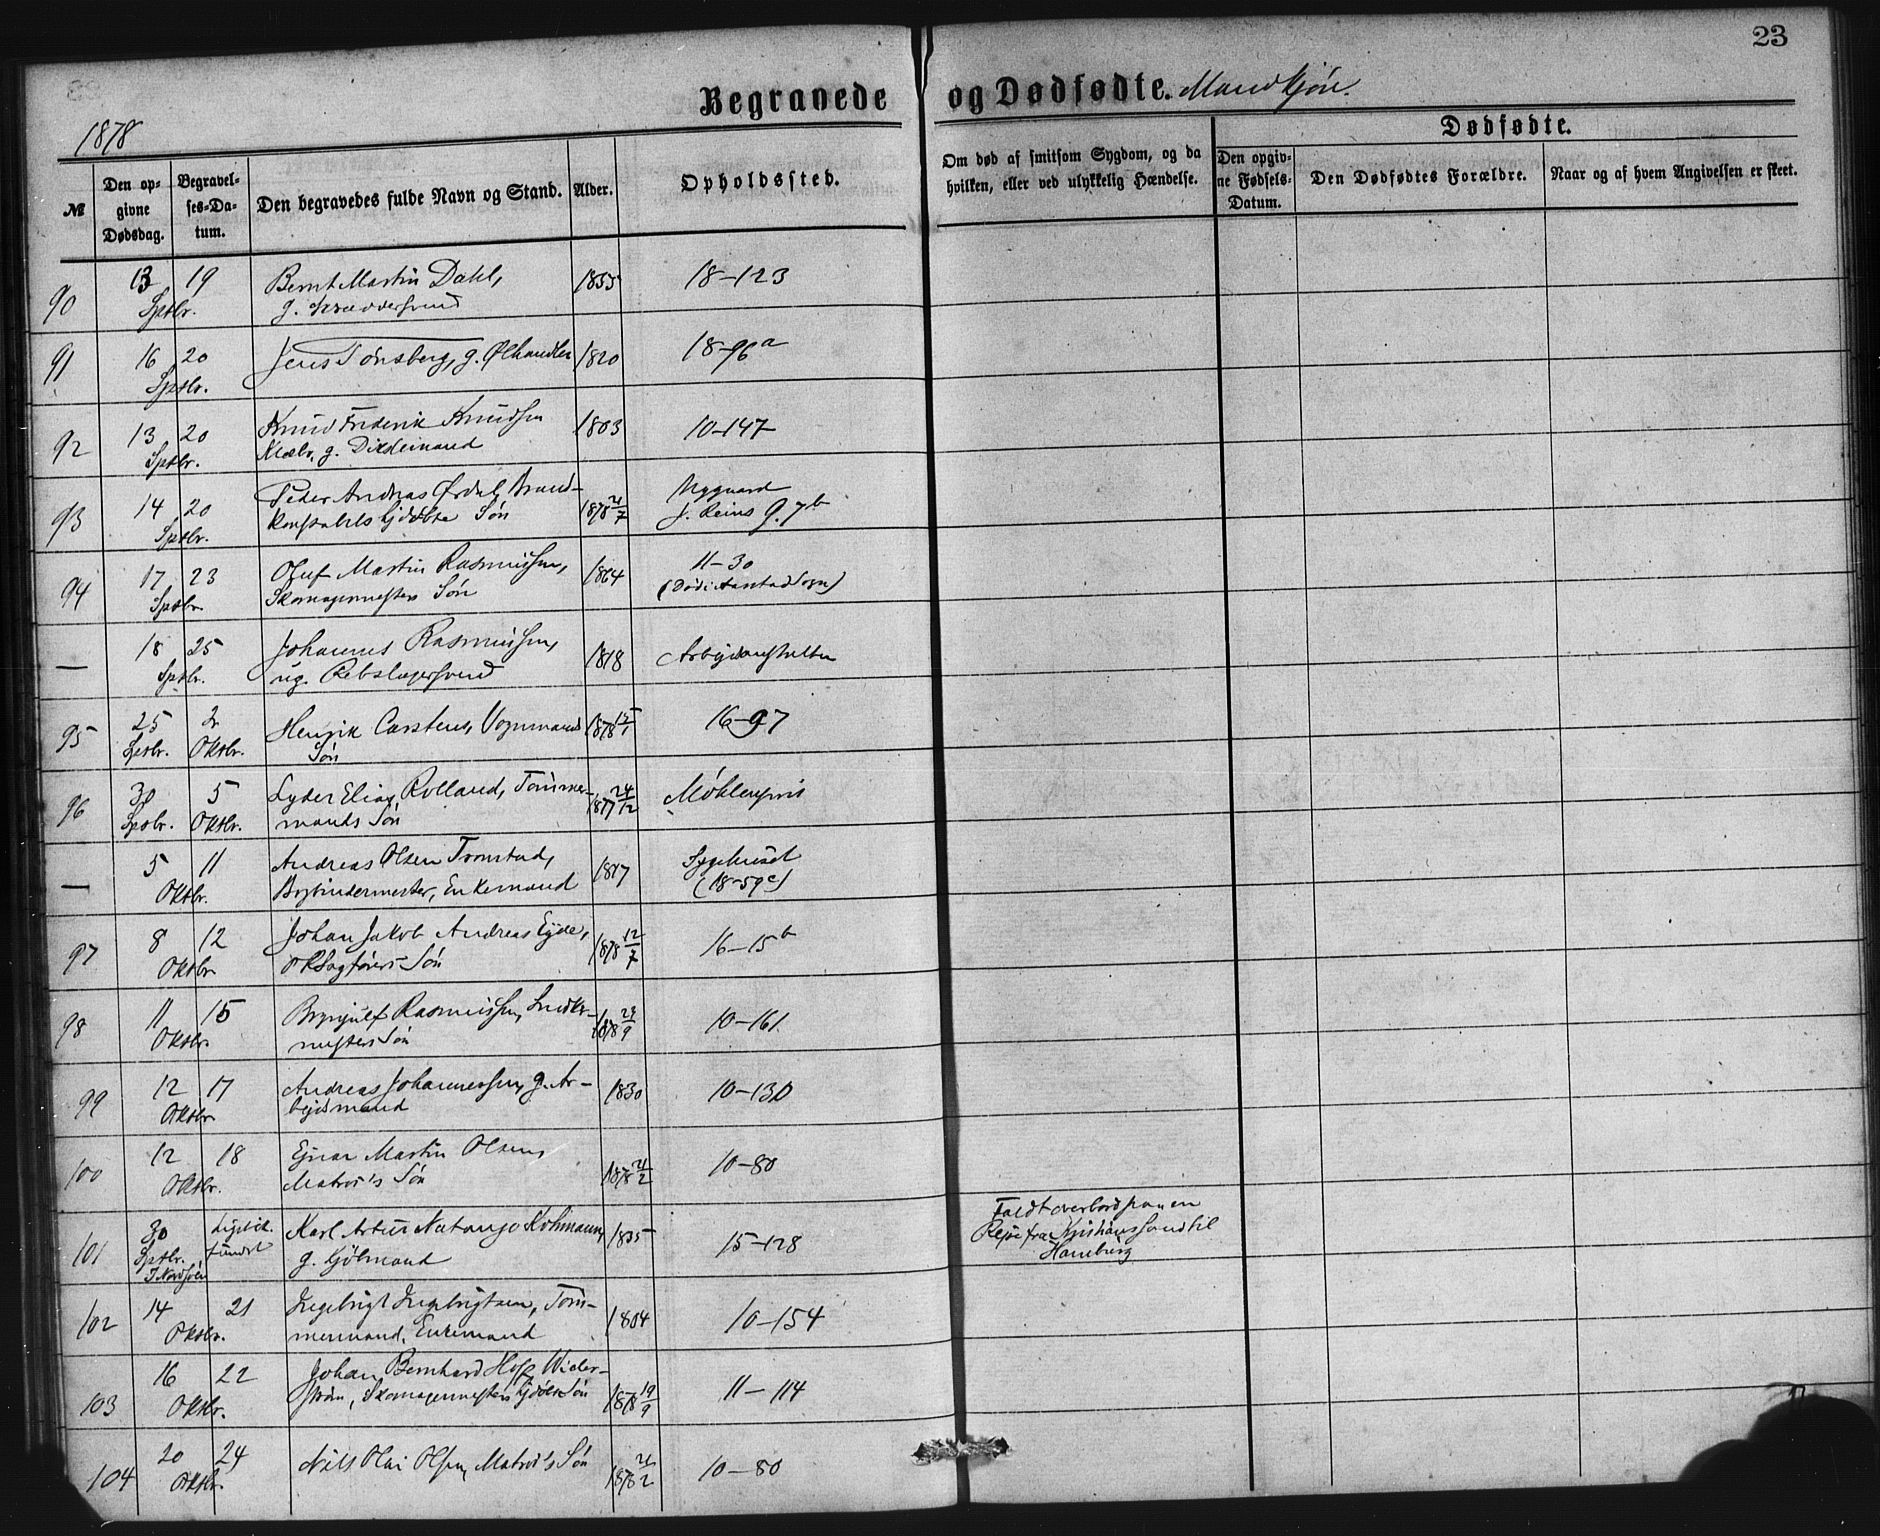 23
Begravede og Dødfødte. Mandkjøn.
1878
Dødfødte.
№
Den opgivne Dødsdag.
Begravelses-Datum.
Den begravedes fulde Navn og Stand.
Alder.
Opholdssted.
Om død af smitsom Sygdom, og da hvilken, eller ved ulykkelig Hændelse.
Den opgivne Fødsels-Datum.
Den Dødfødtes Forældre.
Naar og af hvem Angivelsen er skeet.
90 13 19 Bernt Martin Dahl, 1855 18-123
Sptbr. g. Skræddersvend
91 16 20 Jens Tønsberg, g. Ølhandler 1820 18-96a
Sptbr.
92 13 20 Knud Frederik Knudsen 1803 10-147
Sptbr. g.
93 14 20 Peder Andreas Ørdal, Brand- 1878 21/7 Nygaard
Sptbr. konstabels Søn J. Reins 9.7b
94 17 23 Oluf Martin Rasmussen, 1864 11-30
Sptbr. Skomagermesters Søn (Død i Sogn)
— 18 25 Johannes Rasmussen, 1818 Arbeidsanstalten
Sptbr. ug. Rebslagersvend
95 25 2 Henrik Carstens, Vognmands 1878 16-97
Sptbr. Oktbr. Søn
96 30 5 Lyder Elias Rolland, Tømmer- 1877 24/12 Møhlenpris
Sptbr. Oktbr. mands Søn
— 5 11 Andreas Olsen Tronstad, 1817 Sygehuset
Oktbr. Bogbindermester, Enkemand (18-59c)
97 8 12 Johan Jakob Andreas Eyde, 1878 12/7 16-15b
Oktbr. Søn
98 11 15 Brynjulf Rasmussen, Snedker- 1878 10-161
Oktbr. mesters Søn
99 12 17 Andreas Johannessen, g. Ar- 1830 10-130
Oktbr. beidsmand
100 12 18 Ejnar Martin Olsen, 1878 21/2 10-80
Oktbr. Matros's Søn
101 30 Liget ik. Karl Artur Natango Kohmann, 1835 15-128 Faldt overbord paa en
Sptbr. fundet g. Sømand Reise fra Kristianssand til
I Nordsøen Hamburg
102 14 21 Ingebrigt Ingebrigtsen, Tøm- 1804 10-154
Oktbr. mermand, Enkemand
103 16 22 Johan Bernhard Hoff Wider- 1878 19/9 11-114
Oktbr. strøm, Skomagermesters Søn
104 20 24 Nils Olai Olsen, Matros's Søn 1878 21/2 10-80
Oktbr.